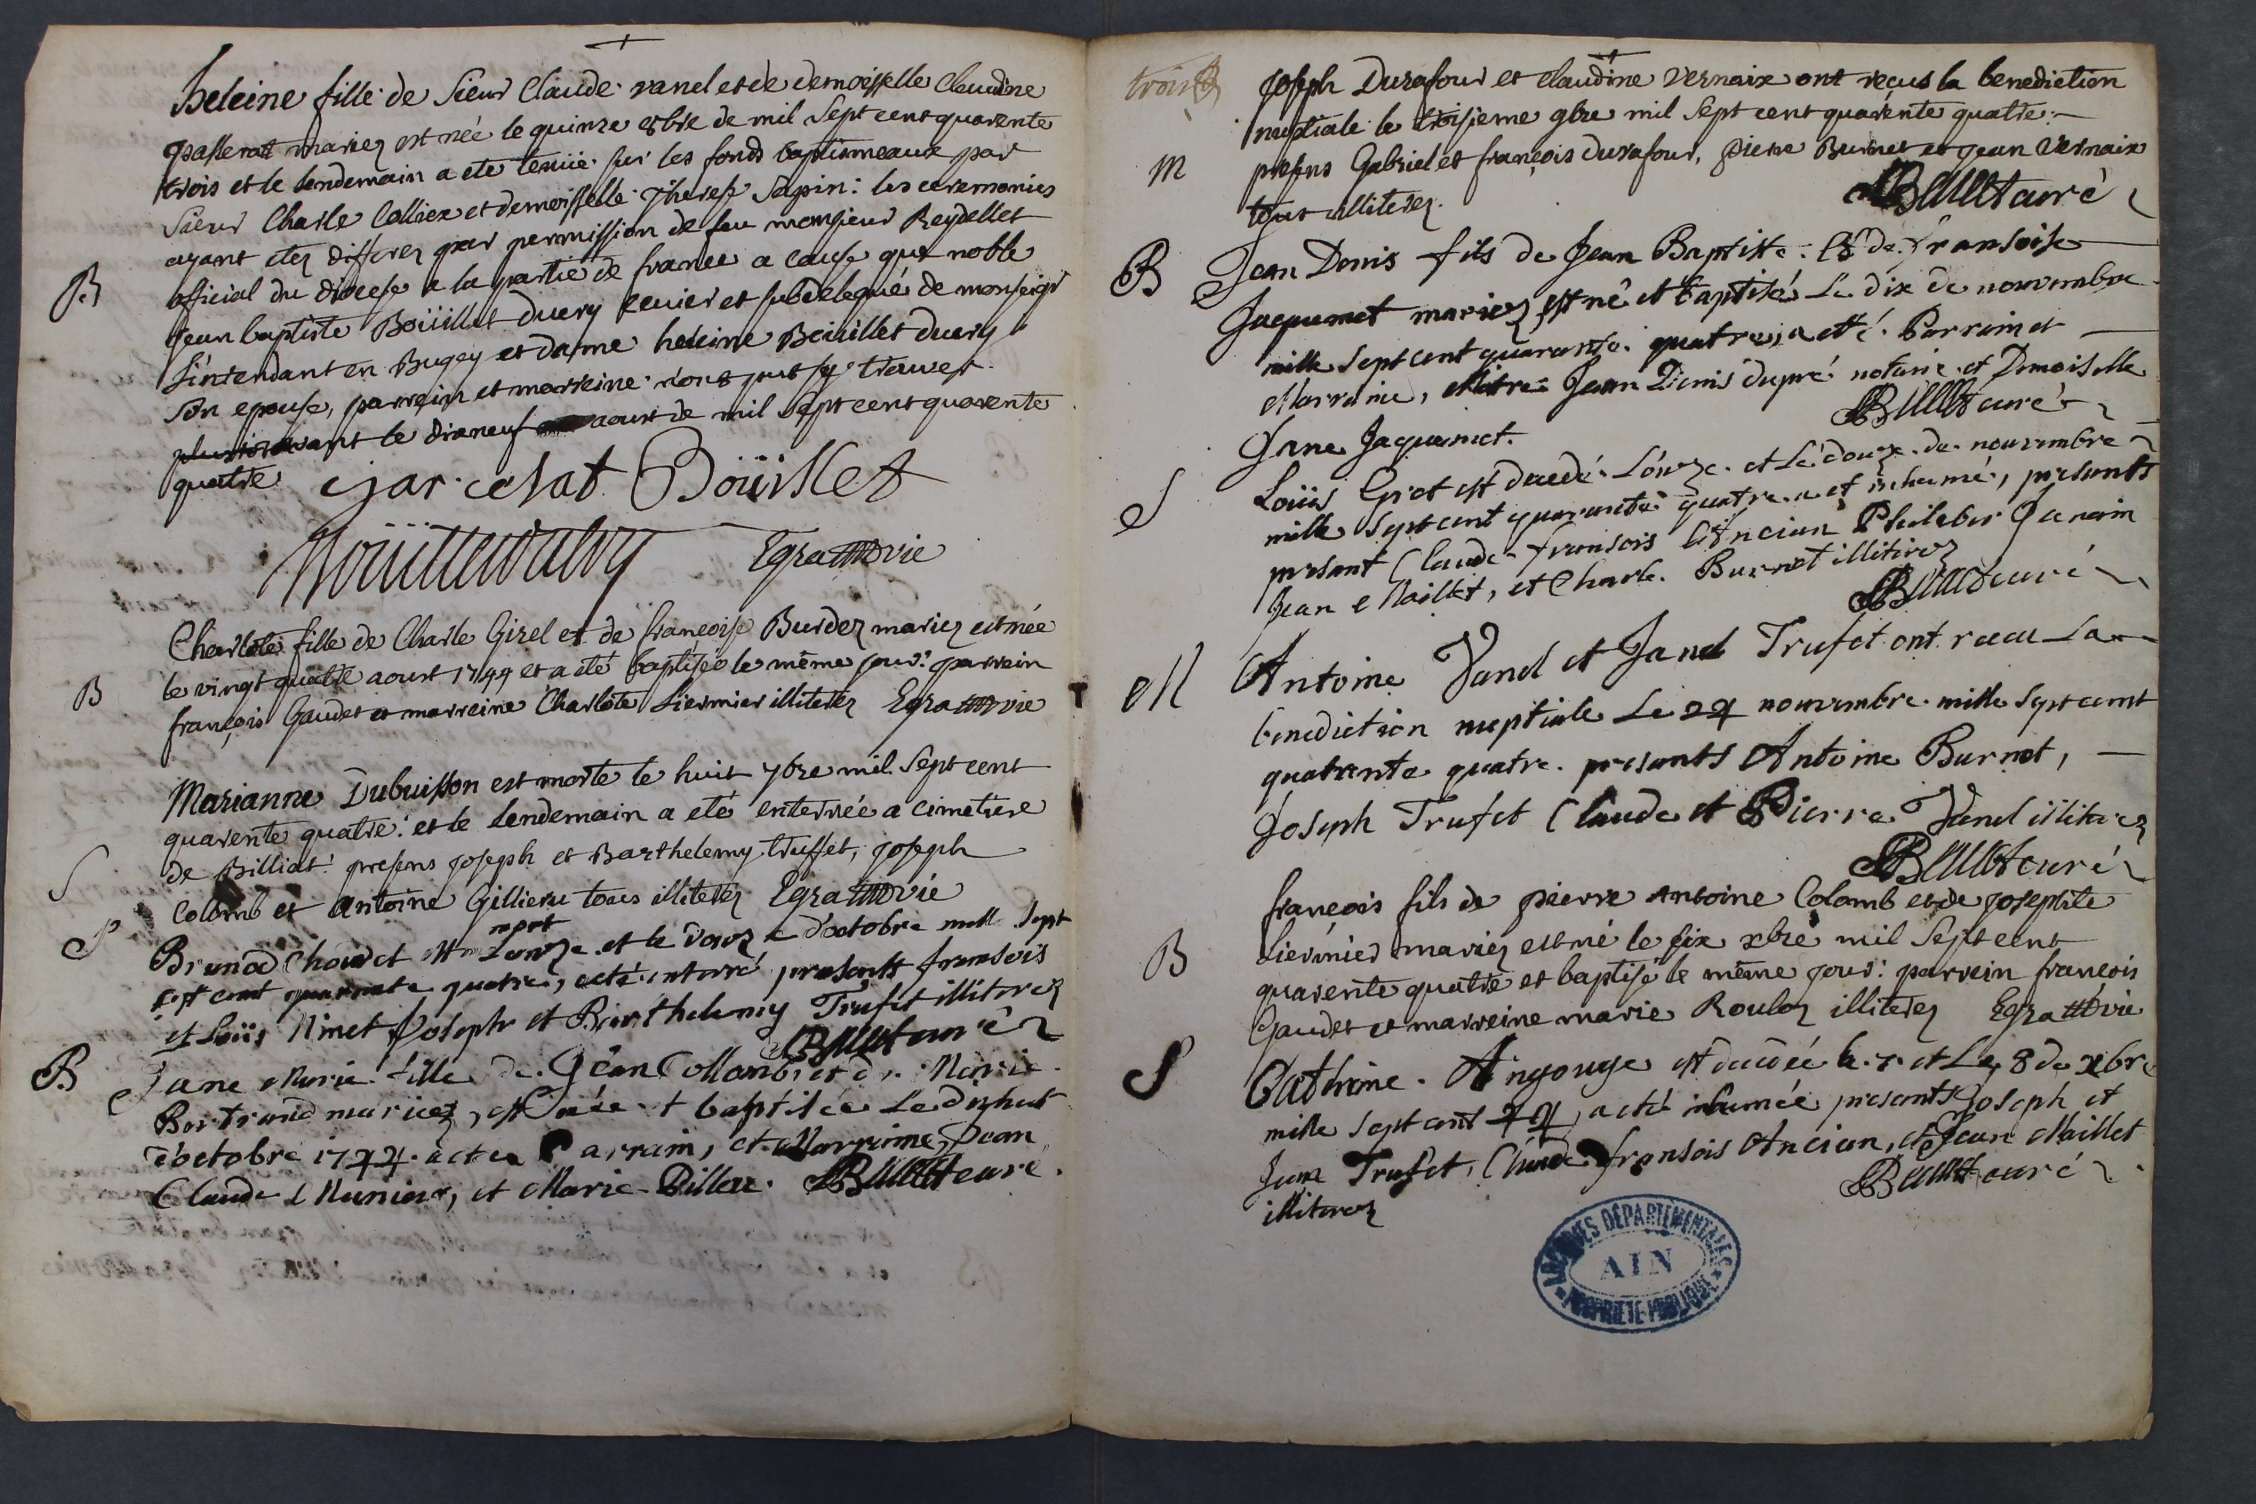 heleine fille de Sieur Claude vanel et de demoiselle Claudine
passerat mariez est née le quinze 8bre de mil Sept cent quarente
trois et le lendemain a ete tenüe sur les fonds baptismeaux par
Sieur Charle Colliex et demoiselle Therese Sapin: les ceremonies
ayant etez differez par permission de feu monsieur Reydellet
B
oficial du diocese a la partie de france a cause que noble
jean baptiste Boüillet ecuier et subdelegué de monseigr
l'intendant en Bugey et dame heleine Boüillet
Son epouse, parrein et marreine n'ont put sy trouver
le dixneuf aoust de mil Sept cent quarente
quatre Boüillet
Egra vie
Charlote fille de Charle Girel et de françoise Burdez mariez est née
le vingt quatre aoust 1744 et a eté baptisée le même jour: parrein
B
françois Gaudet et marreine Charlote Liermier illiterez Egra vie
Marianne Dubuisson est morte le huit 7bre mil Sept cent
quarente quatre: et le lendemain a eté enterrée a cimetiere
de Billiat: presens joseph et Barthelemy truffet, joseph
S
Colomb et antoine tous illiterez Egra vie
S
mort
Chovet est L'onze et le d'octobre mill Sept
cent quarante quatre, eté enterré presents fransois
et Loüis Ninet Joseph et Barthelemy Trufet illiterez
curé
B
Jane Marie fille de Jean Collomb, et de Marie
Bertrand mariez, est née et baptisée Le dixhuit
d'octobre 1744. a eté Parrain, et Marraine, Jean
Claude Munier, et Marie curé
trois
joseph Durafour et Claudine vernaix ont reçus la benediction
nuptiale le troisieme 9bre mil Sept cent quarente quatre:
M
presens Gabriel et françois durafour, pierre Burnet et jean vernaix
tous illiterez.
curé
B
Jean Denis fils de Jean Baptiste et de Fransoise
Jaquemet mariez, est né et baptisé Le dix de nouvembre
mille Sept cent quarante quatre, a eté Parrain et
Marraine, Maitre Jean Denis dupré notaire et Demoiselle
Jane Jaquemet.
curé
S
Loüis est L'onze et Le douze de nouvembre
mille Sept cent quarante quatre a et inhumé, presents
presant Claude fransois L'Ancian
Jean Maillet, et Charle Burnet illiterez
curé
M
Antoine Vanel et Jane Trufet ont receu La
benediction nuptiale Le 24 nouvembre mille Sept cent
quatrante quatre. presants Antoine Burnet,
Joseph Trufet Claude et Pierre Vanel illiterez
curé
françois fils de pierre antoine Colomb et de josephte
B
Liermier mariez est né le six xbre mil Sept cent
quarente quatre et baptisé le même jour: parrein françois
Gaudet et marreine marie illiterez Egra vie
S
Catherine est decedée le 7 et Le 8 de xbre
mille Sept cent 44, a eté inhumée presants Joseph et
Trufet, Claude fransois Ancian, et Jean Maillet
illiterez
curé
ARCHIVES DÉPARTEMENTALES
AIN
PROPRIÉTÉ PUBLIQUE